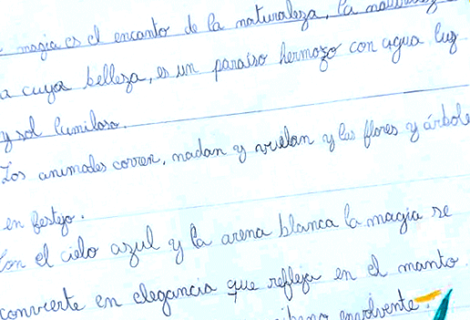 magia es el encanto de la naturaleza, la
a cuya belleza, es un paraíso hermozo con agua luz
y sol lumiloso.
Los animales corren, nadan y vuelan y las flores y árbole
en festejo.
Con el cielo azul y la arena blanca la magia se
convierte en elegancia que refleja en el manto
envolvente.